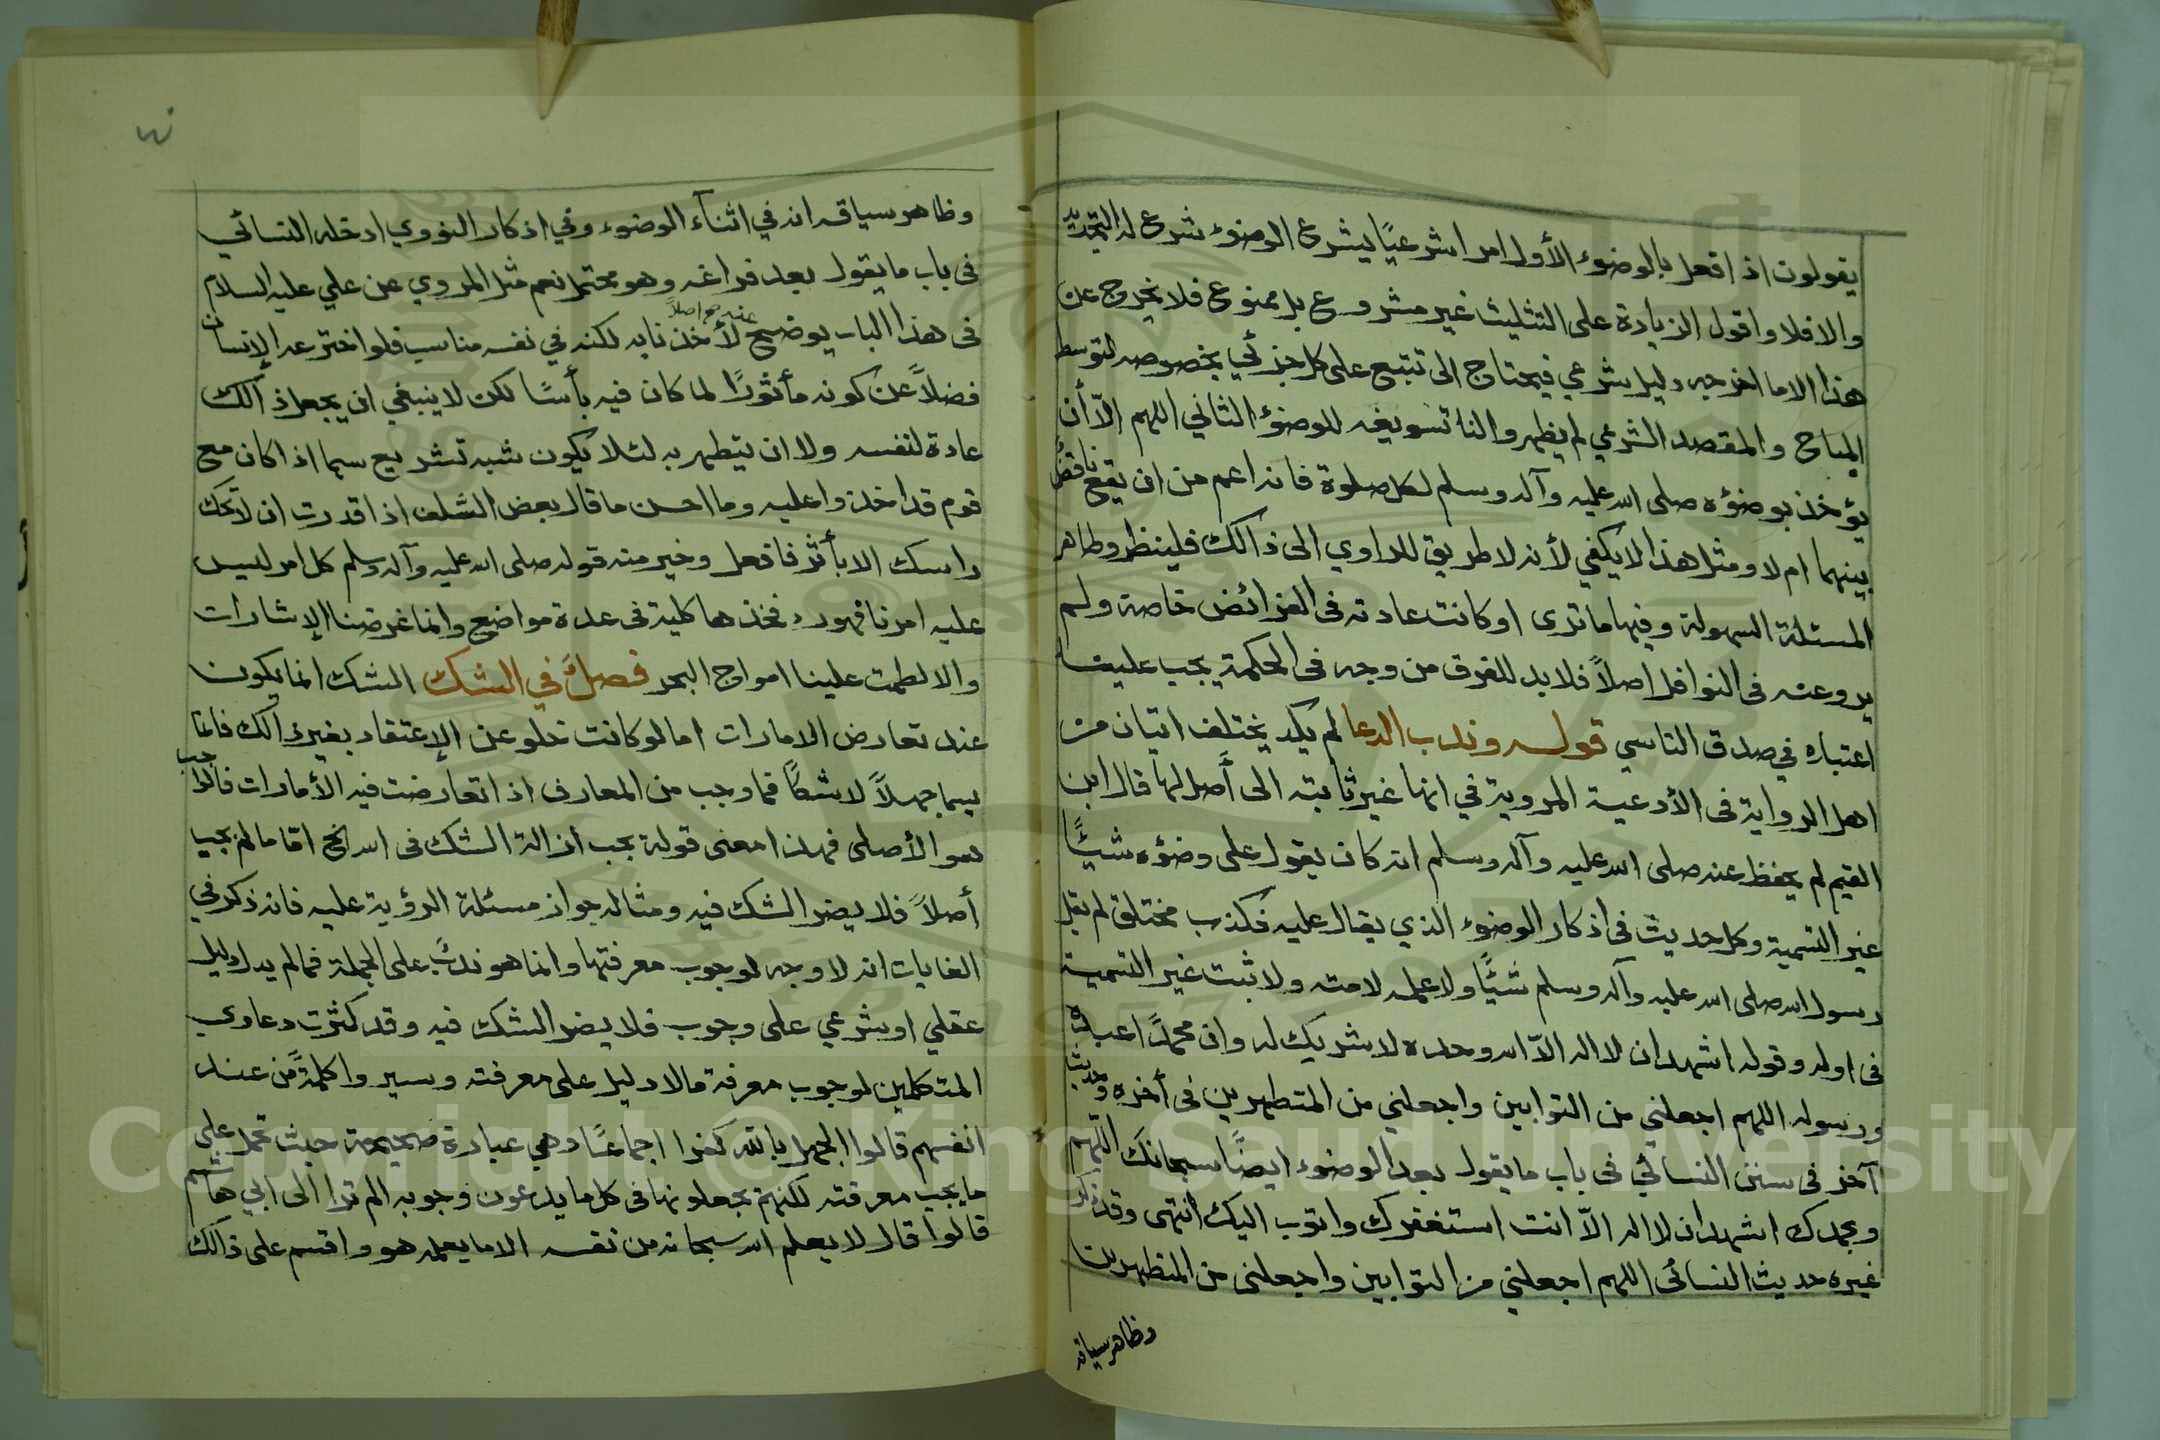 يقولون اذا فعل بالوضوء الأول امرا شرعيًا يشرع الوضوء شرع له التجديد
والا فلا واقول الزيادة على التثليث غير مشروع بل ممنوع فلا يخرج عن
هذا الا ما اخرجه دليل شرعي فيحتاج الى تتبع على كل جزئي بخصوصه لتوسط
المباح والمقصد الشرعي لم يظهر والنا تسويغه للوضوء الثاني اللهم الاّ أن
يؤخذ بوضوءه صلى الله عليه وآله وسلم لكل صلوة فانه اعم من ان يقع ناقضٌ
بينهما ام لا ومثل هذا لا يكفي لأنه لا طريق للراوي الى ذالك فلينظر وظاهر
المسئلة السهولة وفيها ما ترى او كانت عادته في الفرائض خاصة ولم
يروعنه في النوافل اصلاً فلا بد للفرق من وجه في الحكمة يجب علينا
اعتباره في صدق التاسي قوله وندب الدعا لم يكد يختلف اثنان من
اهل الرواية في الأدعية المروية في انها غير ثابته الى أصل لها قال ابن
القيم لم يحفظ عنه صلى الله عليه وآله وسلم انه كان يقول على وضوءه شيئًا
غير التسمية وكل حديث في اذكار الوضوء الذي يقال عليه فكذب مختلق لم يقل
رسول الله صلى الله عليه وآله وسلم شيئًا ولا علمه لامته ولا ثبت غير التسمية
في اوله وقوله اشهد ان لا اله الاّ الله وحده لا شريك له وان محمدًا عبده
ورسوله اللهم اجعلني من التوابين واجعلني من المتطهرين في أخره وحديث
آخر في سنن النسائي في باب ما يقول بعد الوضوء ايضًا سبحانك اللهم
وبحمدك اشهد ان لا اله الاّ انت استغفرك واتوب اليك انتهى وقد ذكر
غيره حديث النسائي اللهم اجعلني من التوابين واجعلني من المتطهرين
وظاهر سياقه
٣
وظاهر سياقه انه في اثنآء الوضوء وفي اذكار النووي ادخله النسائي
في باب ما يقول بعد فراغه وهو محتمل نعم مثل المروي عن علي عليه السلام
في هذا الباب يوضح لأخذنا به لكنه في نفسه مناسب فلو اخترعه الإنسان
فضلاً عن كونه مأثورًا لما كان فيه بأسًا لكن لا ينبغي ان يجعل ذالك
عادة لنفسه ولا ان يتطهر به لئلا يكون شبه تشريع سيما اذا كان مع
قوم قد اخذوا عليه وما احسن ما قال بعض السلف اذا قدرت ان لا تحك
راسك الا بأثر فافعل وخير منه قوله صلى الله عليه وآله وسلم كل امر ليس
عليه امرنا فهو رد فخذها كلية في عدة مواضع وانما غرضنا الإشارات
والا لطمت علينا امواج البحر فصلٌ في الشك الشك انما يكون
عند تعارض الامارات اما لو كانت خلو عن الإعتقاد بغير ذالك فانما
يسما جهلاً لا شكاً فما وجب من المعارف اذا تعارضت فيه الأمارات فالواجب
هو الأصلى فهذا معنى قوله يجب ازالة الشك في الله الخ امّا ما لم يجب
أصلاً فلا يضر الشك فيه ومثاله جواز مسئلة الرؤية عليه فانه ذكر في
الغايات انه لا وجه لوجوب معرفتها وانما هو ندبٌ على الجملة فما لم يدل دليل
عقلي او شرعي على وجوب فلا يضر الشك فيه وقد كثرت دعاوي
المتكلمين لوجوب معرفة ما لا دليل على معرفته وسيروا كلمةً من عند
انفسهم قالوا الجهل بالله كفرا اجماعًا وهي عبارة صحيحة حيث تحمل على
ما يجب معرفته لكنهم يجعلونها في كل ما يدعون وجوبه الم ترا الى ابي هاشم
قالوا قال لا يعلم الله سبحانه من نفسه الا ما يعلمه هو واقسم على ذالك
Copyright © King Saud University